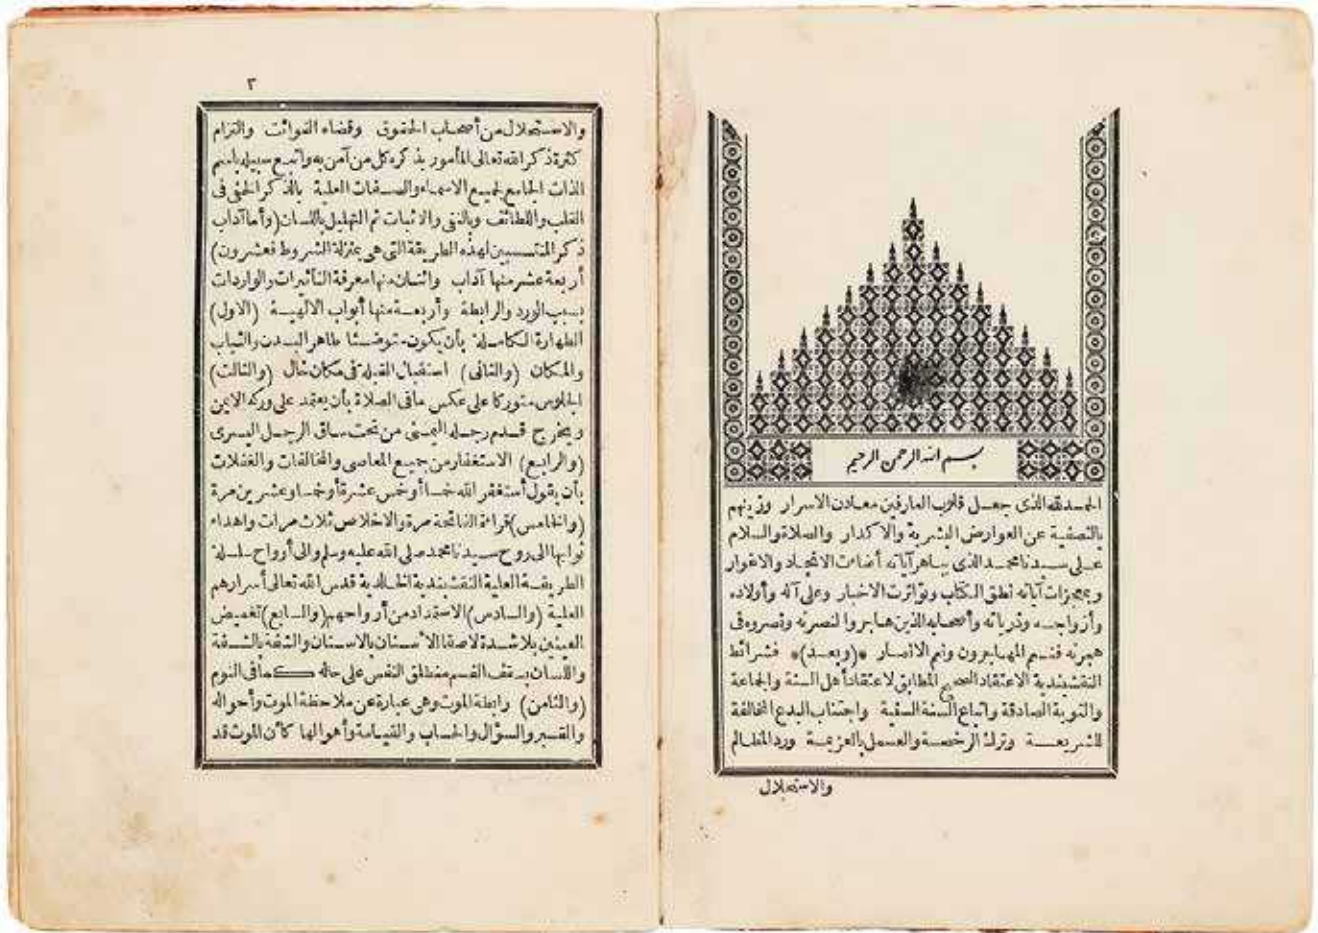 بسم الله الرحمن الرحيم
الحمد لله الذى جعل قلوب العارفين معادن الاسرار وزينهم
بالتصفية عن العوارض البشرية والاكدار والصلاة والسلام
على سيدنا محمد الذى بباهر آياته أضاءت الانجاد والاغوار
وبمعجزات آياته نطق الكتاب وتواترت الاخبار وعلى آله وأولاده
وأزواجه وذرياته وأصحابه الذين هاجروا لنصرته ونصروه فى
هجرته فنعم المهاجرون ونعم الانصار *(وبعد)* فشرائط
النقشبندية الاعتقاد الصحيح المطابق لاعتقاد أهل السنة والجماعة
والتوبة الصادقة واتباع السنة السنية واجتناب البدع المخالفة
للشريعة وترك الرخصة والعمل بالعزيمة ورد المظالم
والاستحلال
٣
والاستحلال من أصحاب الحقوق وقضاء الفوائت والتزام
كثرة ذكر الله تعالى المأمور بذكره كل من آمن به واتبع سبيله باسم
الذات الجامع لجميع الاسماء والصفات العلية بالذكر الخفى فى
القلب واللطائف وبالنفى والاثبات ثم التهليل باللسان (وأما آداب
ذكر المنتسبين لهذه الطريقة التى هى بمنزلة الشروط فعشرون)
أربعة عشر منها آداب واثنان منها معرفة التأثيرات والواردات
بسبب الورد والرابطة وأربعة منها أبواب الالهية (الاول)
الطهارة الكاملة بأن يكون متوضئا طاهر البدن والثياب
والمكان (والثانى) استقبال القبلة فى مكان خال (والثالث)
الجلوس متوركا على عكس ما فى الصلاة بأن يعتمد على وركه الايمن
ويخرج قدم رجله اليمنى من تحت ساق الرجل اليسرى
(والرابع) الاستغفار من جميع المعاصى والمخالفات والغفلات
بأن يقول أستغفر الله خمسا أو خمس عشرة أو خمسا وعشرين مرة
(والخامس) قراءة الفاتحة مرة والاخلاص ثلاث مرات واهداء
ثوابها الى روح سيدنا محمد صلى الله عليه وسلم والى أرواح سلسلة
الطريقة العلية النقشبندية الخالدية قدس الله تعالى أسرارهم
العلية (والسادس) الاستمداد من أرواحهم (والسابع) تغميض
العينين بلا شدة لاصقا الاسنان بالاسنان والشفة بالشفة
واللسان بسقف الفم مطلق النفس على حاله كما فى النوم
(والثامن) رابطة الموت وهى عبارة عن ملاحظة الموت وأحواله
والقبر والسؤال والحساب والقيامة وأهوالها كأن الموت قد